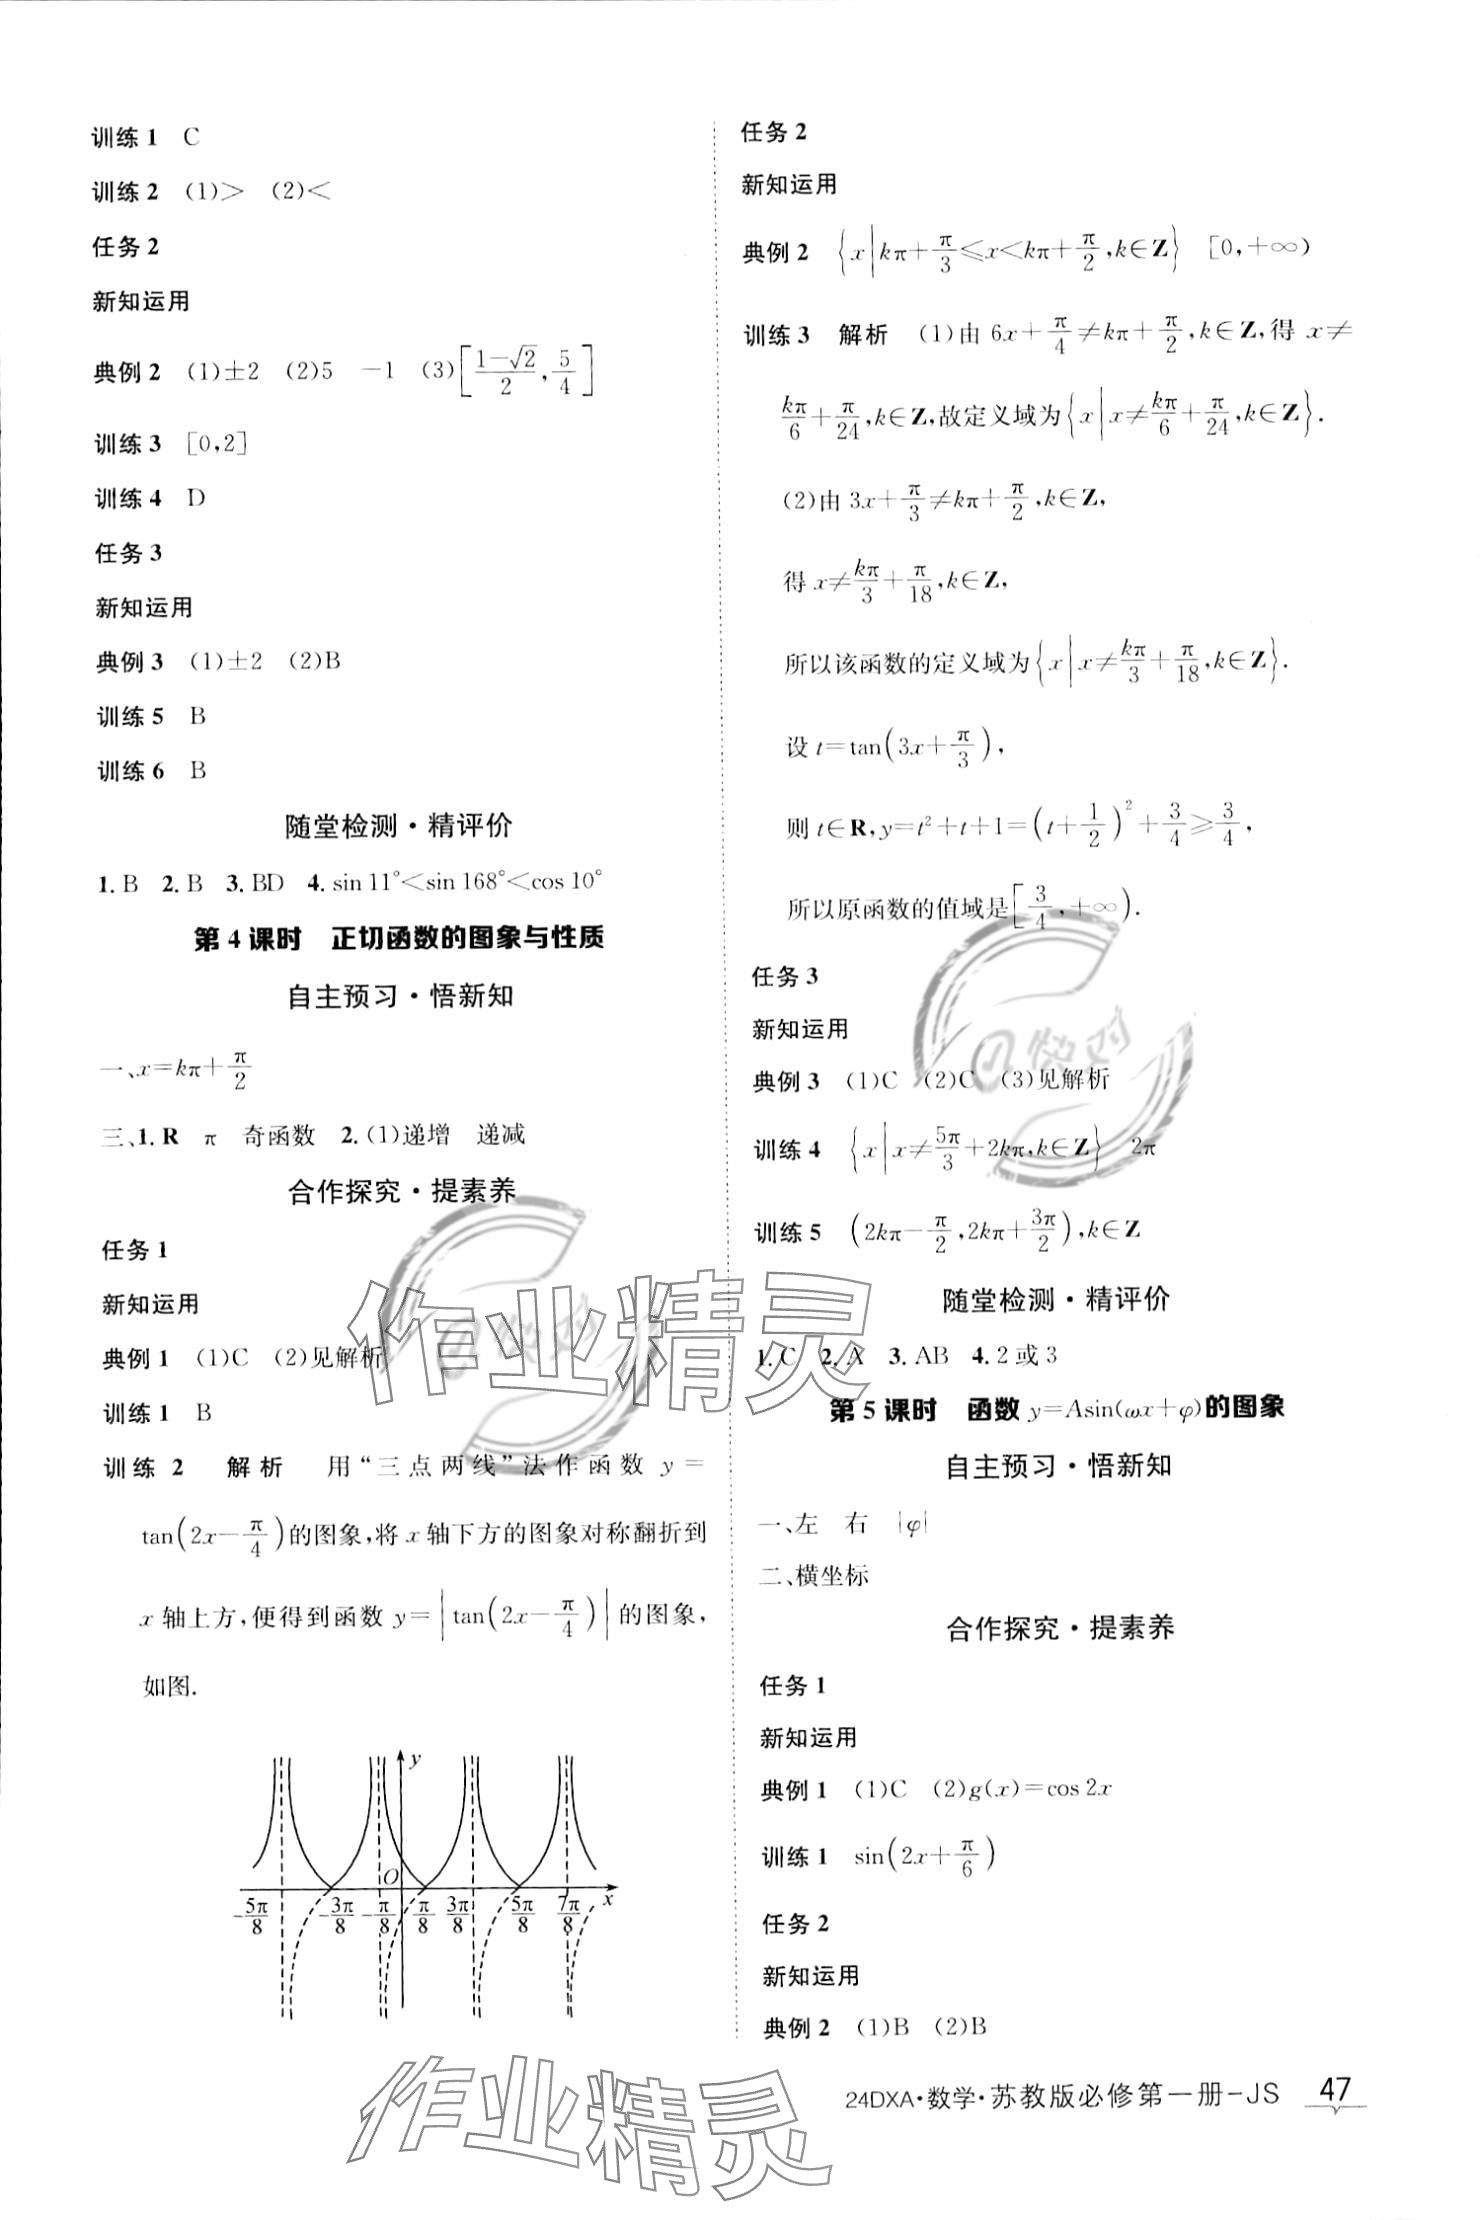 训练1 C
训练2 (1)> (2)<
任务2
新知运用
典例2 (1)±2 (2)5 -1 (3)[(1-√2)/2, 5/4]
训练3 [0,2]
训练4 D
任务3
新知运用
典例3 (1)±2 (2)B
训练5 B
训练6 B
随堂检测·精评价
1.B 2.B 3.BD 4.sin 11°<sin 168°<cos 10°
第4课时 正切函数的图象与性质
自主预习·悟新知
一、x=kπ+π/2
三、1.R π 奇函数 2.(1)递增 递减
合作探究·提素养
任务1
新知运用
典例1 (1)C (2)见解析
训练1 B
训练2 解析 用“三点两线”法作函数 y=
tan(2x-π/4)的图象,将 x 轴下方的图象对称翻折到
x 轴上方,便得到函数 y=|tan(2x-π/4)|的图象,
如图.
y
O
x
-5π/8 -3π/8 -π/8 π/8 3π/8 5π/8 7π/8
任务2
新知运用
典例2 {x|kπ+π/3≤x<kπ+π/2,k∈Z} [0,+∞)
训练3 解析 (1)由 6x+π/4≠kπ+π/2,k∈Z,得 x≠
kπ/6+π/24,k∈Z,故定义域为{x|x≠kπ/6+π/24,k∈Z}.
(2)由 3x+π/3≠kπ+π/2,k∈Z,
得 x≠kπ/3+π/18,k∈Z,
所以该函数的定义域为{x|x≠kπ/3+π/18,k∈Z}.
设 t=tan(3x+π/3),
则 t∈R,y=t²+t+1=(t+1/2)²+3/4≥3/4,
所以原函数的值域是[3/4,+∞).
任务3
新知运用
典例3 (1)C (2)C (3)见解析
训练4 {x|x≠5π/3+2kπ,k∈Z} 2π
训练5 (2kπ-π/2,2kπ+3π/2),k∈Z
随堂检测·精评价
1.C 2.A 3.AB 4.2或3
第5课时 函数 y=Asin(ωx+φ)的图象
自主预习·悟新知
一、左 右 |φ|
二、横坐标
合作探究·提素养
任务1
新知运用
典例1 (1)C (2)g(x)=cos 2x
训练1 sin(2x+π/6)
任务2
新知运用
典例2 (1)B (2)B
24DXA·数学·苏教版必修第一册-JS 47
作业精灵
作业精灵
快对
快对